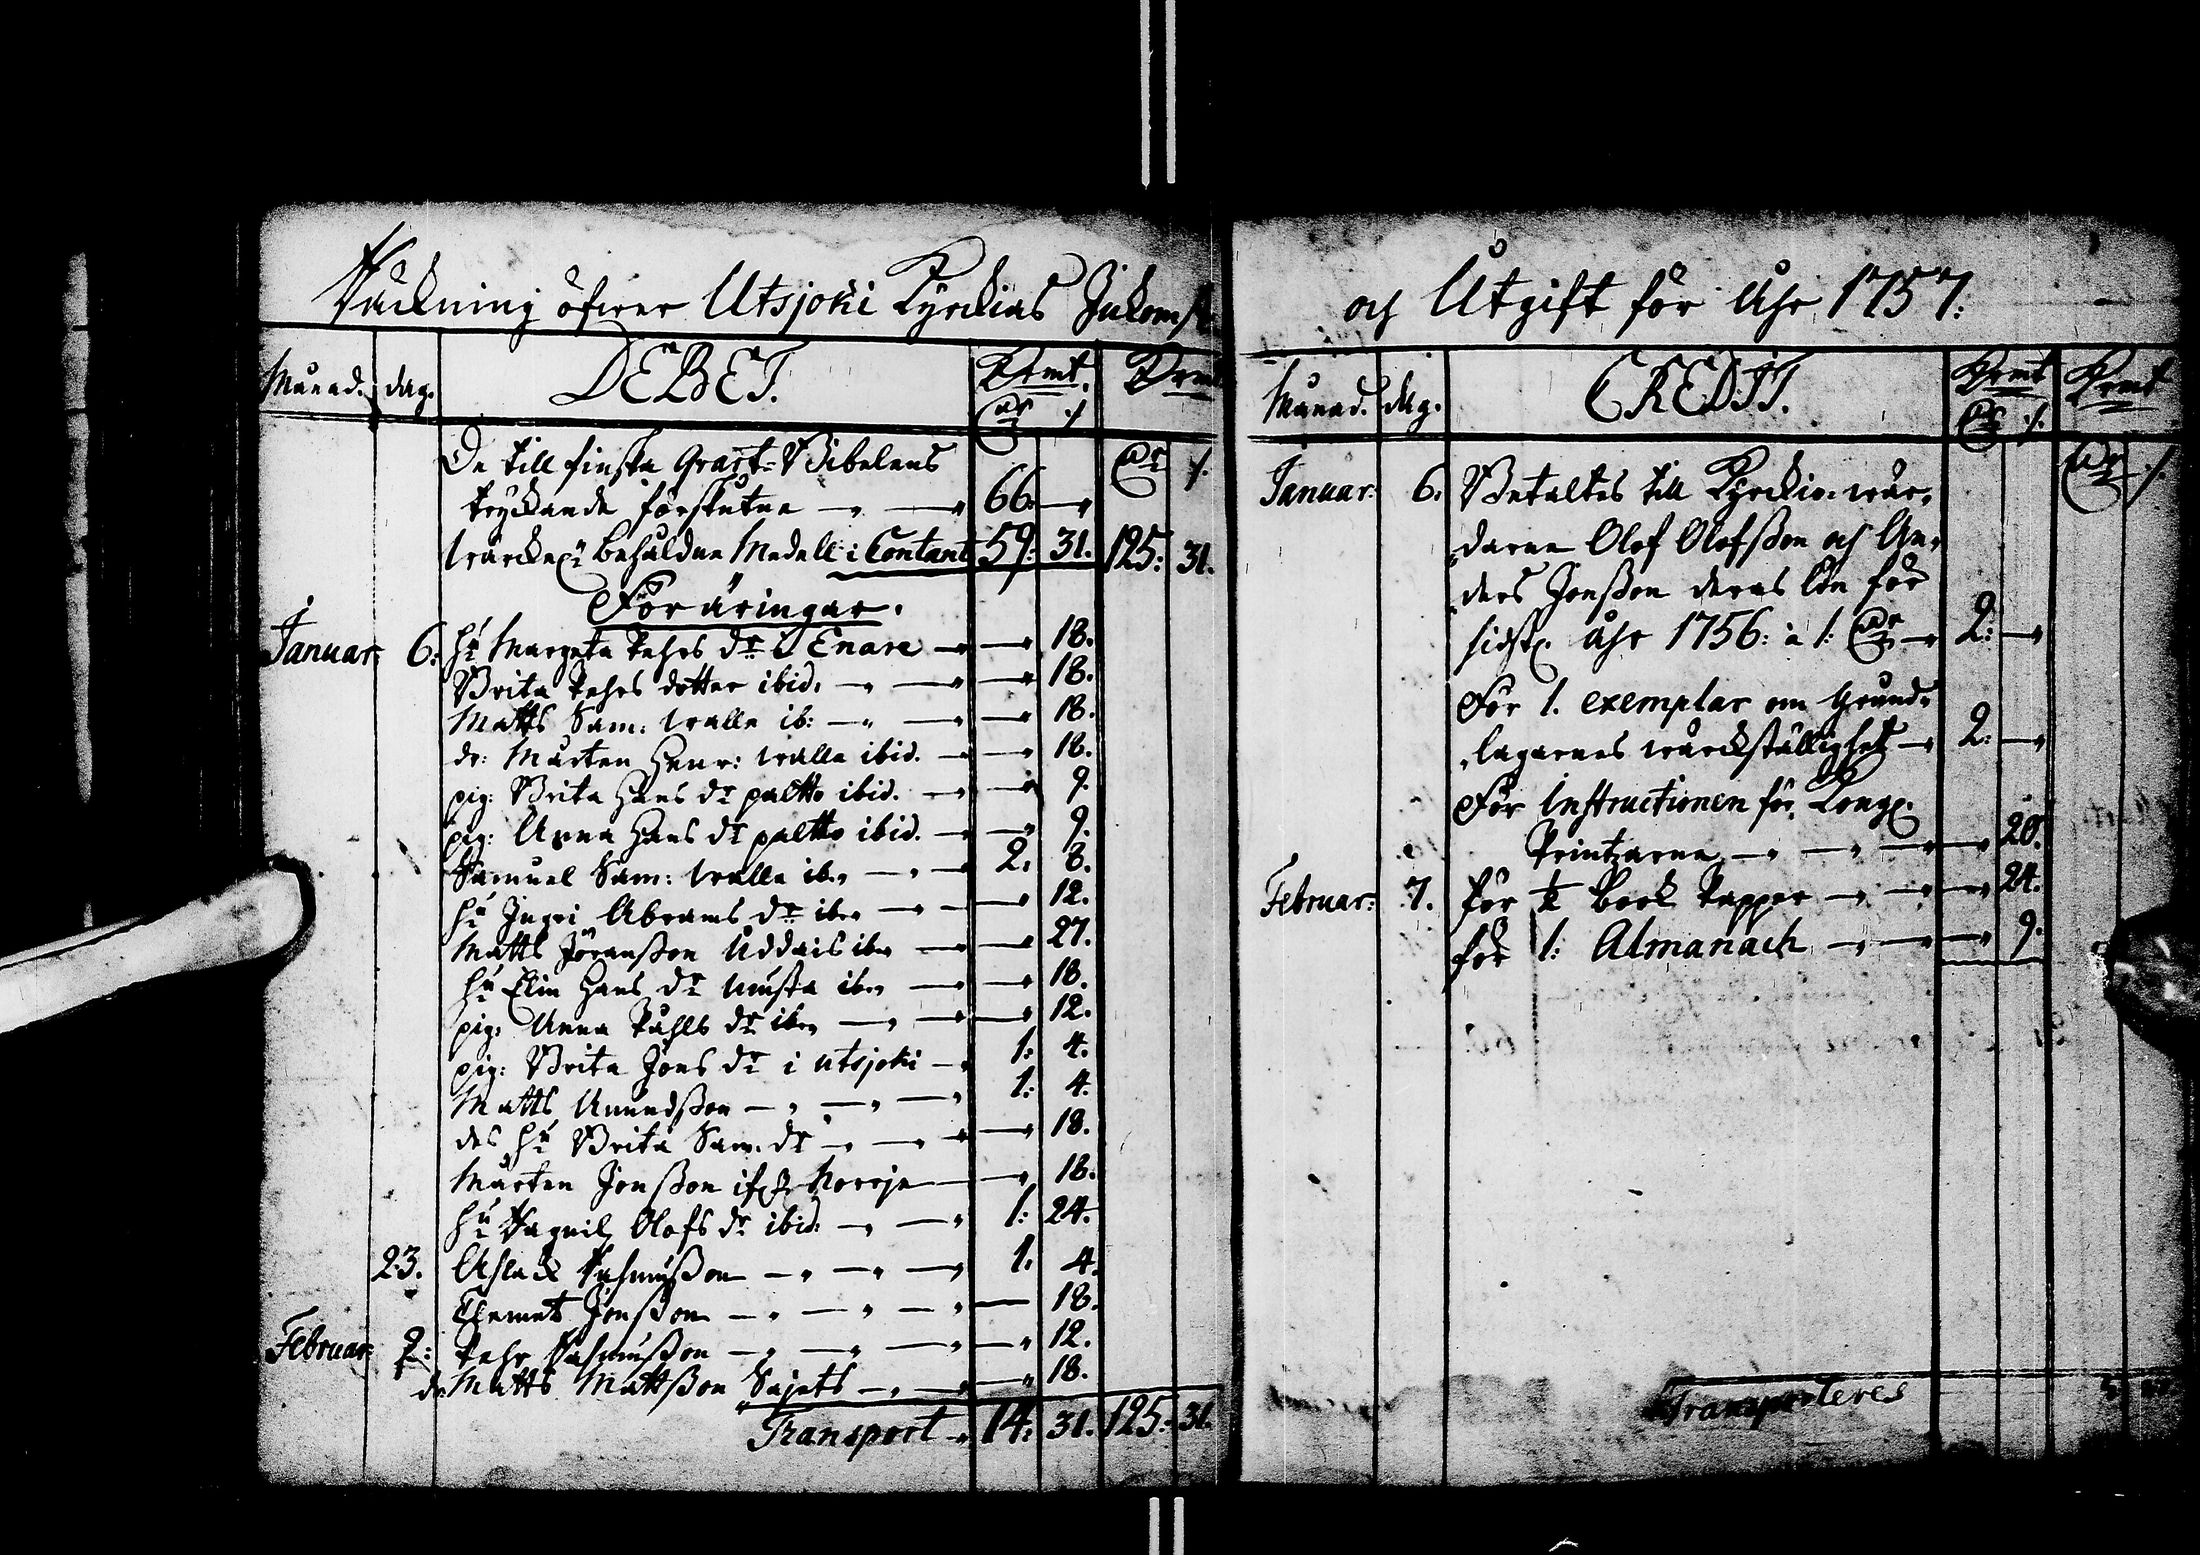 Räckning öfwer Utsjoki Kyrckias Inkomst
Månad. dag. DEBET. Krmt. Krmt
De till finska Qvart-Bibelens
tryckande förskutne — 66. —
Wärcke behåldne Medell i Contant 59: 31. 125: 31.
Föräringar.
Januar: 6. hu Margeta Pehrs dr i Enare — — 18.
Brita Pehrs dotter ibid. — — 18.
Matts Sam: Walle ib: — — 18.
dr: Mårten Henr: Walle ibid. — — 18.
pig: Brita Hans dr paltto ibid. — — 9.
pig: Anna Hans dr paltto ibid. — — 9.
Samuel Sam: Walle ib. — 2. 8.
hu Ingri Abrams dr ib. — — 12.
Matts Jöransson Uddais ib. — — 27.
hu Elin Hans dr Musta ib. — — 18.
pig: Anna Påhls dr ib. — — 12.
pig: Brita Jöns dr i utsjoki — 1: 4.
Matts Amundsson — 1: 4.
des hu Brita Sam. dr — — 18.
Mårten Jonsson Norrje — — 18.
hu Ragnil Olofs dr ibid: — 1: 24.
23. Aslack Rasmusson — 1. 4.
Clemet Jonsson — — 18.
Februar: 2: Pehr Rasmusson — — 12.
dr Matts Mattsson Sajets — — 18.
Transport — 14: 31. 125: 31.
och Utgift för Åhr 1757:
Månad. dag. CREDIT. Krmt Krmt
Januar: 6. Betaltes till Kyrckio-wär-
darne Olof Olofsson och An-
ders Jonsson deras lön för
sidst. åhr 1756: a 1: — 2: —
För 1. exemplar om Grund-
lagarnes wärckställighet — 2: —
För Instructionen för Kongl.
Printzarne — — 20.
Februar: 7. för ½ Book Papper — — 24.
för 1: Almanach — — 9.
Transporteres